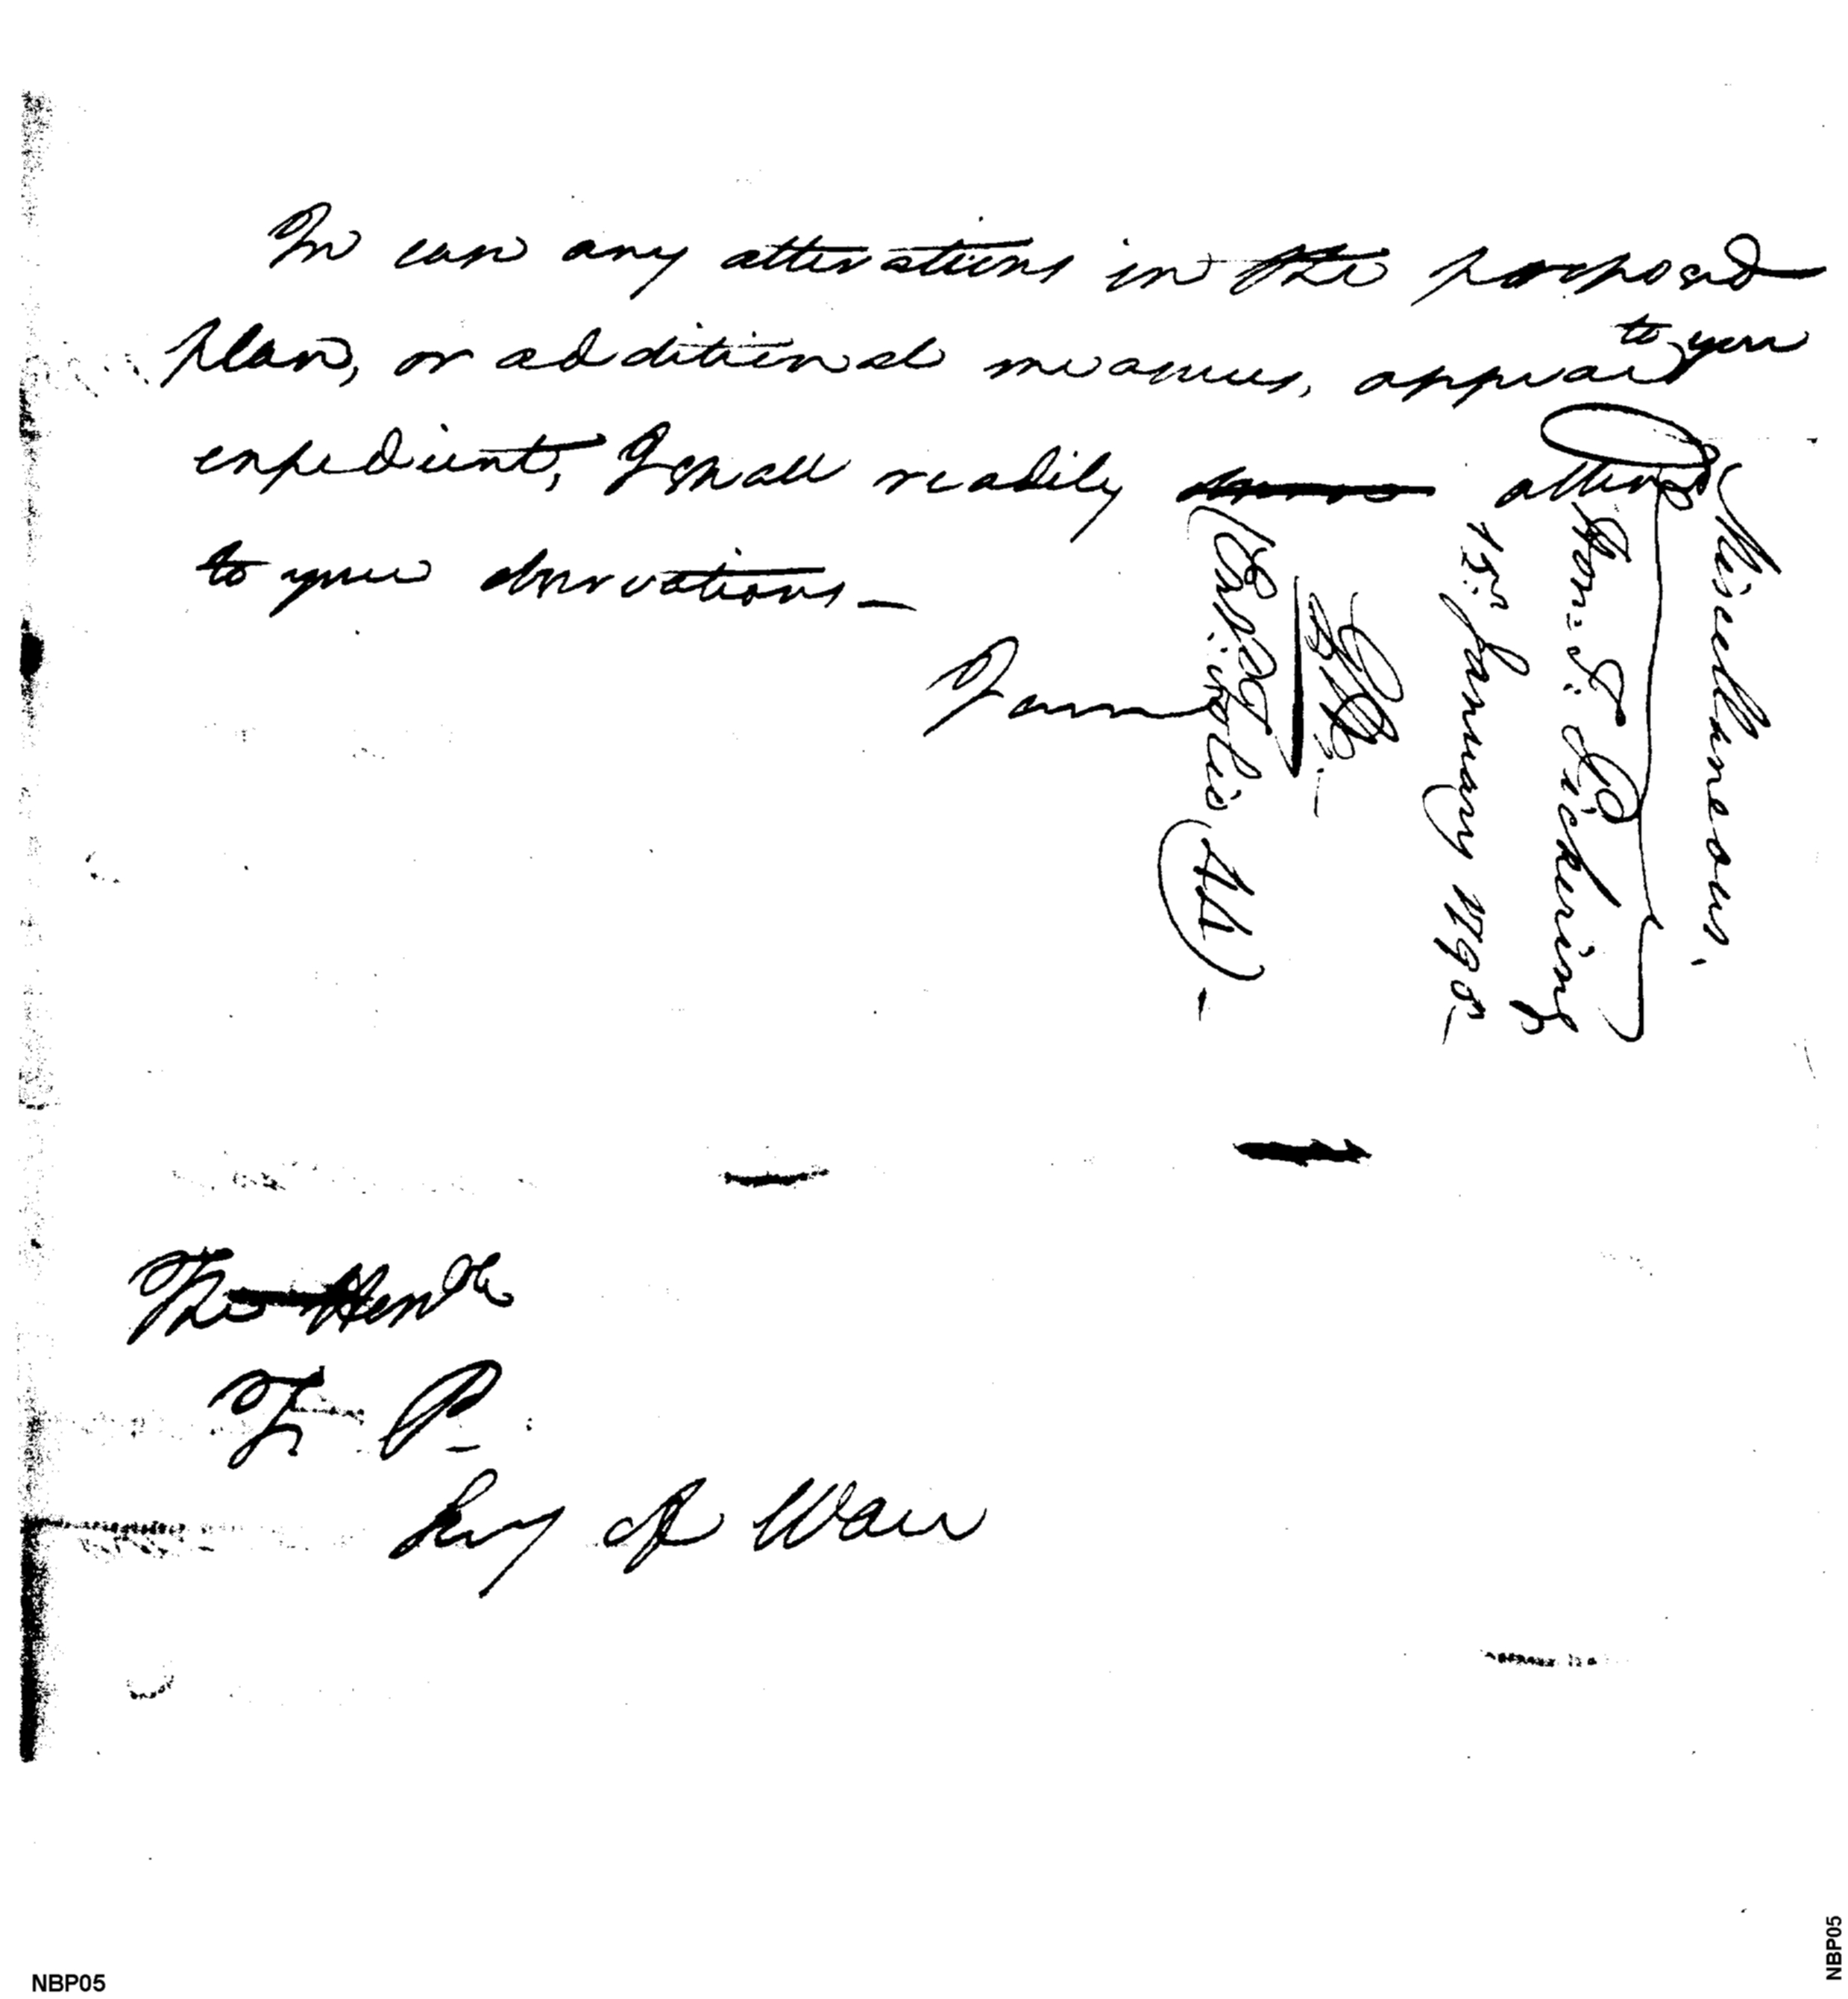 In case any alterations in the proposed
plan, or additional measures, appear to you
expedient, I shall readily attend
to your observations—
I am
Miscellaneous.
Hon: T. Pickering
15th January 1795
The Honble
T— P—
Secy of War
NBP05
NBP05